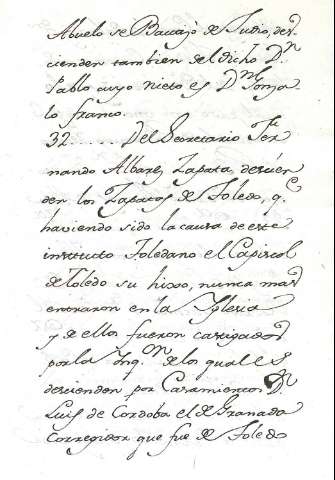 Abuelo se Baucajò de Judio, des-
cienden tambien del dicho D.n
Pablo cuyo nieto es D.n Gonza
lo franco.
32...... Del Secretario Fer
nando Albarez Zapata, descien
den los Zapatas de Toledo, q.e
haviendo sido la causa de este
instituto Toledano el Capiscol
de Toledo su hixo, nunca mas
entraron en la Yglesia
y de ellos fueron castigados
por la Inq.on de los quales
descienden por Casamientos D.n
Luis de Cordoba el de Granada
Corregidor que fue de Toledo